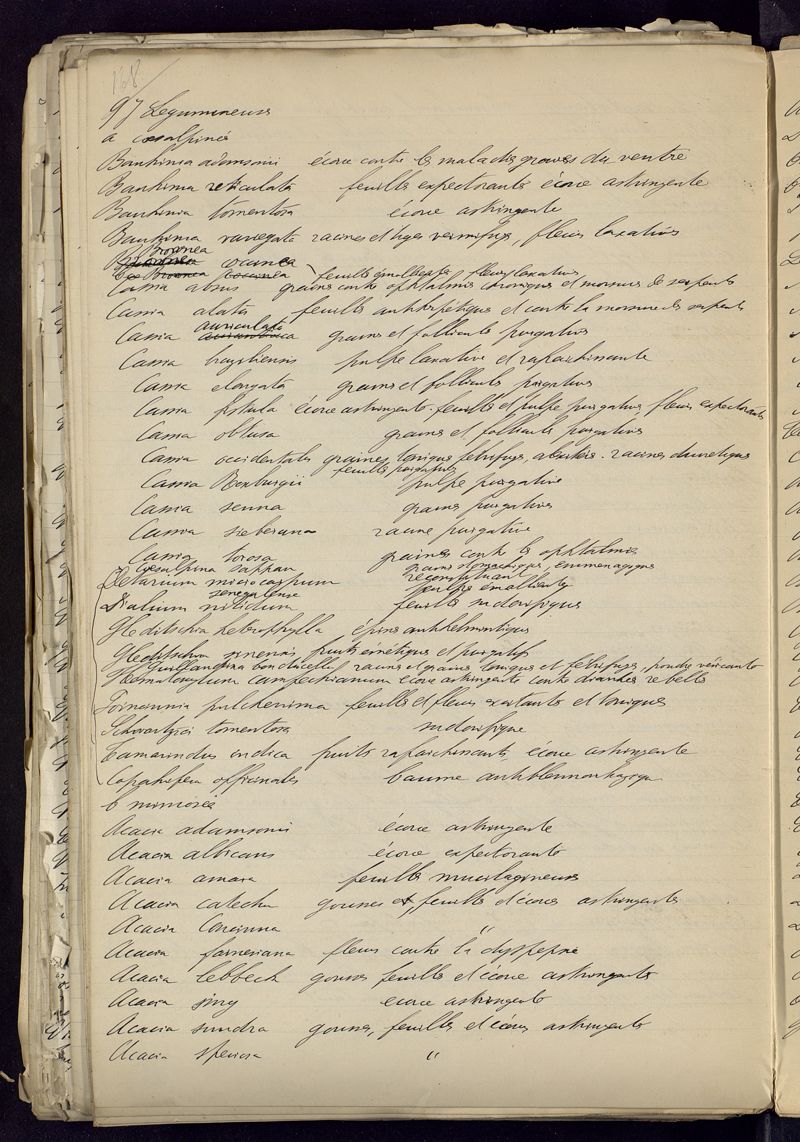 168
97 Legumineuses
a coesalpinés
Bauhinia adamsonii écorce contre les maladies graves du ventre
Bauhinia reticulata feuilles expectorants écorce astringente
Bauhinia tomentosa écorce astringente
Bauhinia variegata racines et tiges vermifuges, fleurs laxatives
Brownea coccinea
Brownea coccinea feuilles fleurs laxatives
Cassia absus graines contre ophtalmies chroniques et morsures de serpents
Cassia alata feuilles antiherpétiques et contre la morsure de serpents
Cassia auriculata graines et follicules purgatives
Cassia brasiliensis pulpe laxative et rafraichissante
Cassia elongata graines et follicules purgatives
Cassia fistula écorce astringente. feuilles et pulpe purgatives, fleurs expectorants
Cassia obtusa graines et follicules purgatives
Cassia occidentales graines toniques febrifuges, racines diuretiques
feuilles purgatives
Cassia Roxburgii pulpe purgative
Cassia senna graines purgatives
Cassia sieberana racine purgative
Cassia torosa graines contre les ophtalmies
Coesalpina sappan graines stomachiques, emmenagogues
Detarium microcarpum reconstituant
senegalense pulpe emolliente
Dialium nitidum feuilles sudorifiques
Gleditschia heterophylla épines anthelmintiques
Gleditschia sinensis fruits emetiques et purgatifs
Guillandina bonducella racines et graines toniques et febrifuges, poudre vésicante
Hematoxylum campechianum écorce astringente contre diarrhées rebelles
Poincinnia pulcherrima feuilles et fleurs excitantes et toniques
Schwartzia tomentosa sudorifique
Tamarindus indica fruits rafraichissants, écorce astringente
Copahifera officinales baume antiblennorrhagique
b mimosées
Acacia adamsonii écorce astringente
Acacia albicans écorce expectorante
Acacia amara feuilles mucilagineuses
Acacia catechu gousses et feuilles et écorces astringentes
Acacia Concinna "
Acacia farnesiana fleurs contre la dyspepsie
Acacia lebbeck gousses feuilles et écorce astringents
Acacia sing écorce astringente
Acacia sundra gousses, feuilles et écorces astringents
Acacia speciosa "